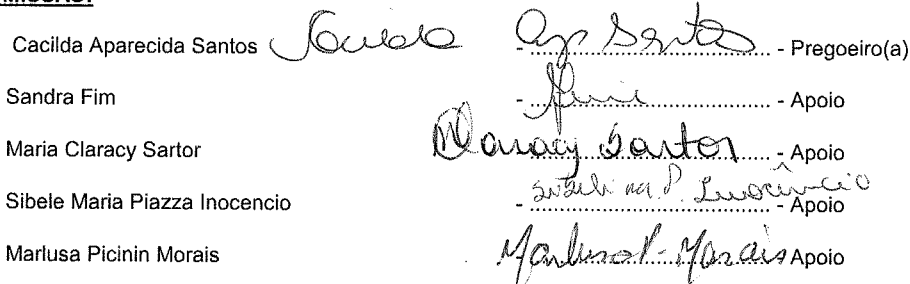 Cacilda Aparecida Santos Cacilda Ap Santos - Pregoeiro(a)
Sandra Fim - - Apoio
Maria Claracy Sartor Mª Claracy Sartor - Apoio
Sibele Maria Piazza Inocencio - Sibeli Ma. P. Inocêncio - Apoio
Marlusa Picinin Morais Marlusa P. Morais Apoio